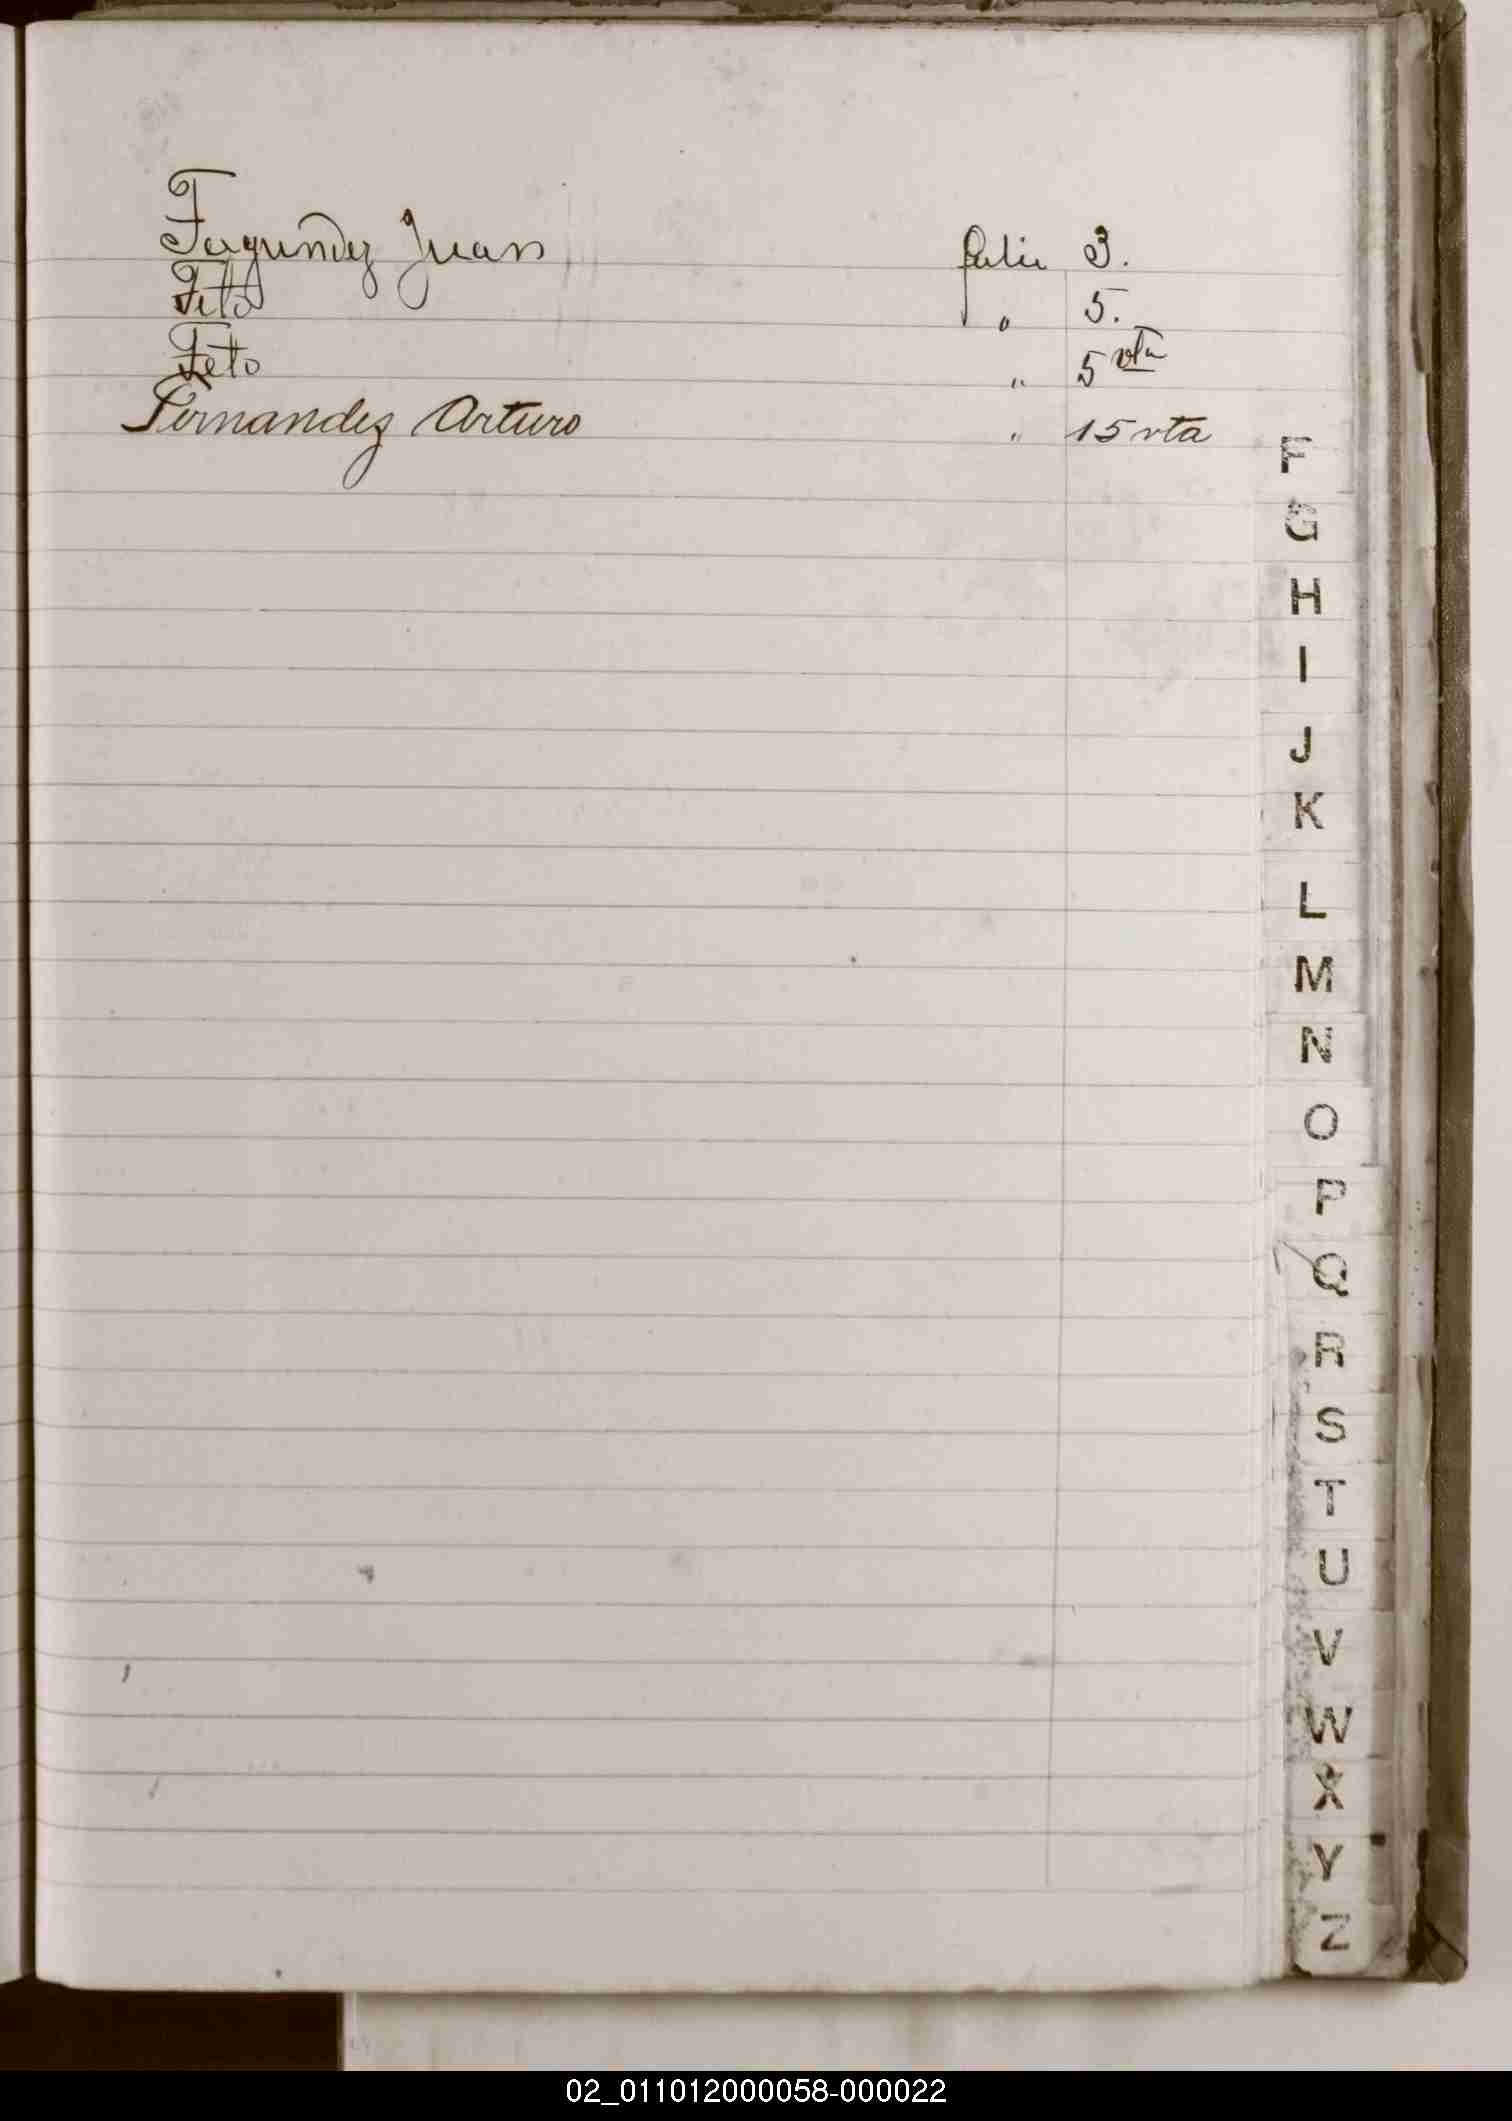 Fagundez Juan folio 3.
Feto " 5.
Feto " 5 vta
Fernandez Arturo " 15 vta
F
G
H
I
J
K
L
M
N
O
P
Q
R
S
T
U
V
W
X
Y
Z
02_011012000058-000022